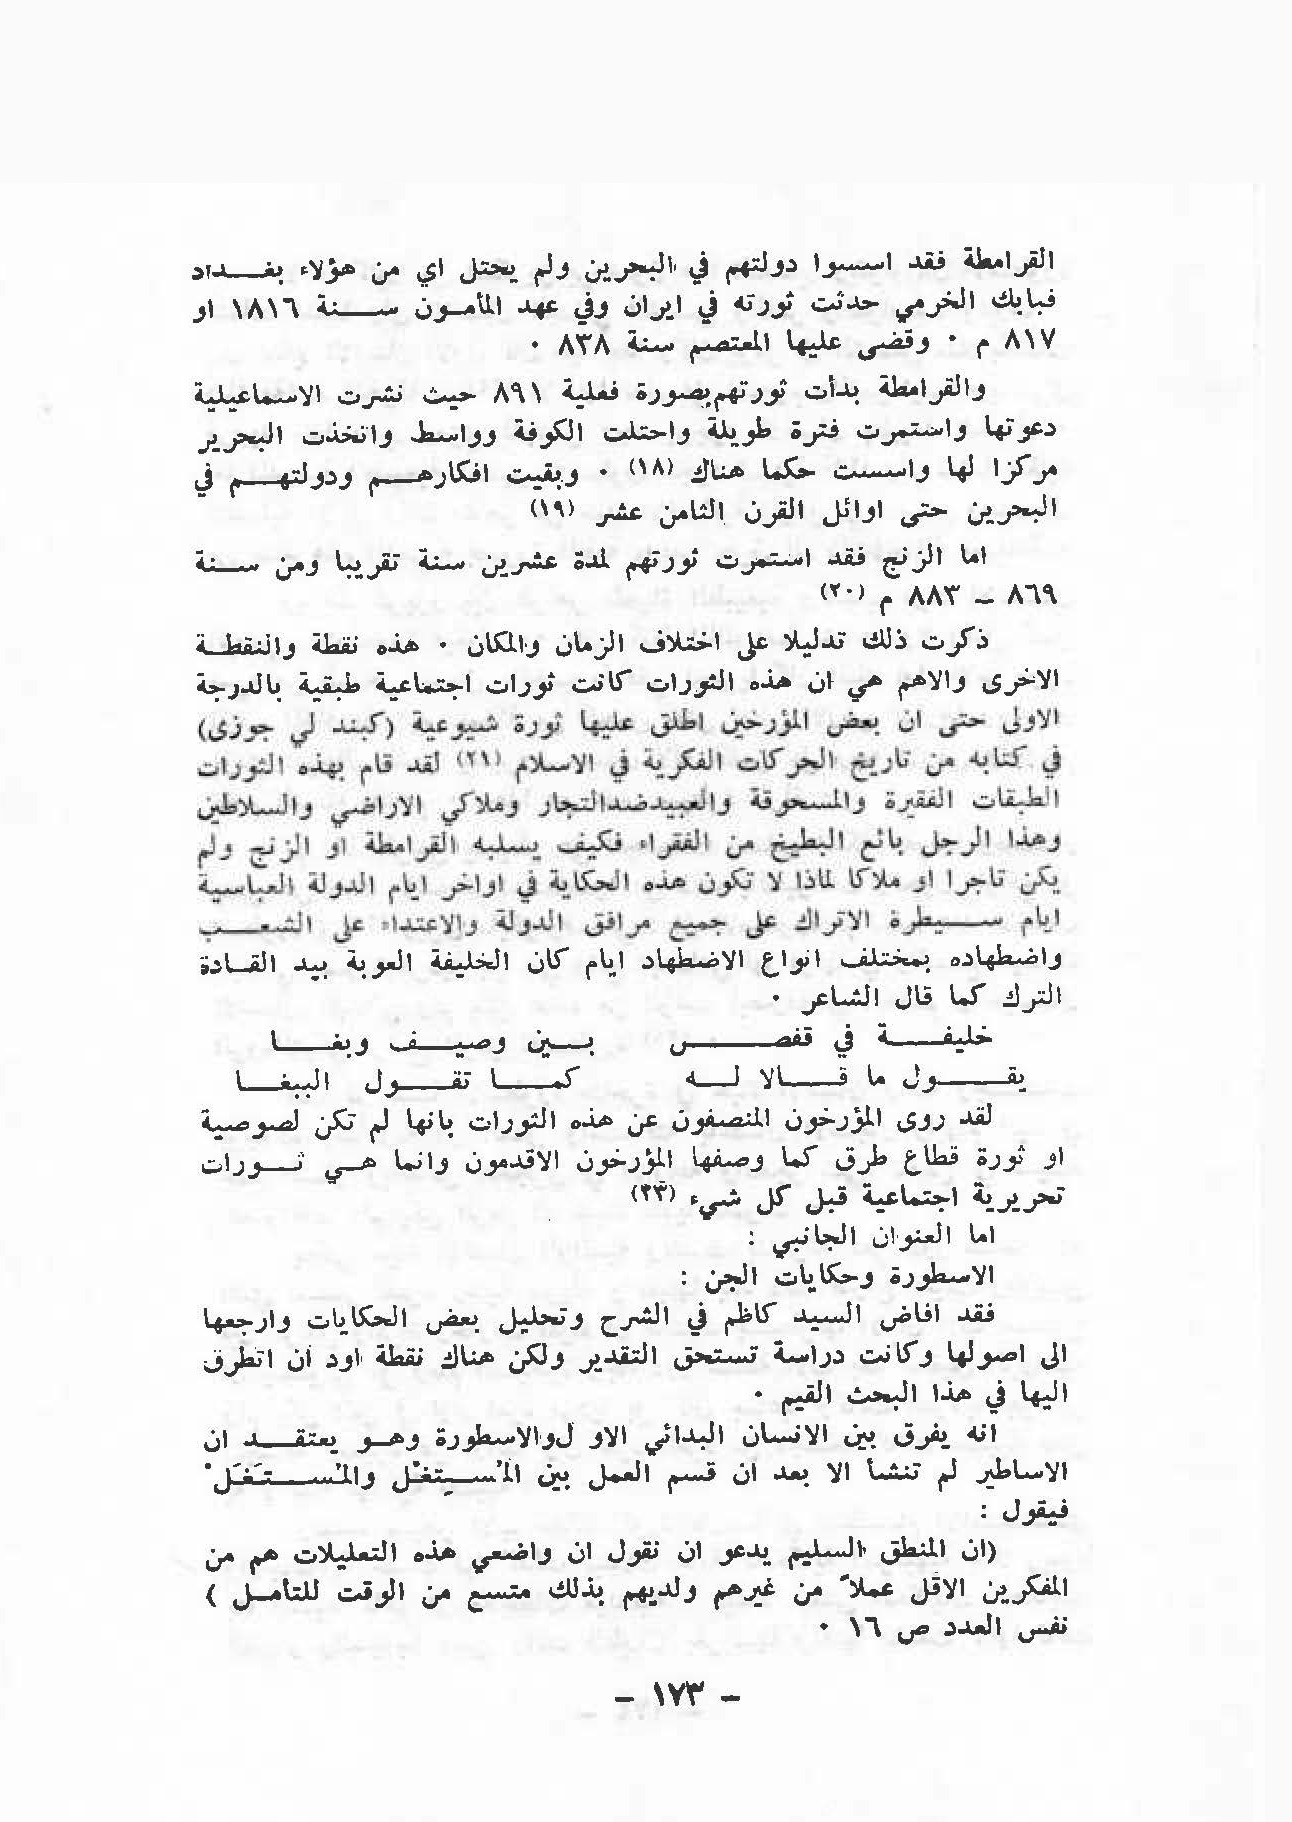 القرامطة فقد اسسوا دولتهم في البحرين ولم يحتل اي من هؤلاء بغداد
فبابك الخرمي حدثت ثورته في ايران وفي عهد المأمون سنة ١٨١٦ او
٨١٧ م ٠ وقضى عليها المعتصم سنة ٨٣٨ ٠
والقرامطة بدأت ثورتهم بصورة فعلية ٨٩١ حيث نشرت الاسماعيلية
دعوتها واستمرت فترة طويلة واحتلت الكوفة وواسط واتخذت البحرير
مركزا لها واسست حكما هناك (١٨) ٠ وبقيت افكارهم ودولتهم في
البحرين حتى اوائل القرن الثامن عشر (١٩)
اما الزنج فقد استمرت ثورتهم لمدة عشرين سنة تقريبا ومن سنة
٨٦٩ – ٨٨٣ م (٢٠)
ذكرت ذلك تدليلا على اختلاف الزمان والمكان ٠ هذه نقطة والنقطة
الاخرى والاهم هي ان هذه الثورات كانت ثورات اجتماعية طبقية بالدرجة
الاولى حتى ان بعض المؤرخين اطلق عليها ثورة شيوعية (كبند لي جوزى)
في كتابه من تاريخ الحركات الفكرية في الاسلام (٢١) لقد قام بهذه الثورات
الطبقات الفقيرة والمسحوقة والعبيدضدالتجار وملاكي الاراضي والسلاطين
وهذا الرجل بائع البطيخ من الفقراء فكيف يسلبه القرامطة او الزنج ولم
يكن تاجرا او ملاكا لماذا لا تكون هذه الحكاية في اواخر ايام الدولة العباسية
ايام سيطرة الاتراك على جميع مرافق الدولة والاعتداء على الشعب
واضطهاده بمختلف انواع الاضطهاد ايام كان الخليفة العوبة بيد القادة
الترك كما قال الشاعر ٠
خليفة في قفص بين وصيف وبغا
يقول ما قالا له كما تقول الببغا
لقد روى المؤرخون المنصفون عن هذه الثورات بانها لم تكن لصوصية
او ثورة قطاع طرق كما وصفها المؤرخون الاقدمون وانما هي ثورات
تحريرية اجتماعية قبل كل شيء (٢٣)
اما العنوان الجانبي :
الاسطورة وحكايات الجن :
فقد افاض السيد كاظم في الشرح وتحليل بعض الحكايات وارجعها
الى اصولها وكانت دراسة تستحق التقدير ولكن هناك نقطة اود ان اتطرق
اليها في هذا البحث القيم ٠
انه يفرق بين الانسان البدائي الاو لوالاسطورة وهو يعتقد ان
الاساطير لم تنشأ الا بعد ان قسم العمل بين المُستغِل والمُستَغَل
فيقول :
(ان المنطق السليم يدعو ان نقول ان واضعي هذه التعليلات هم من
المفكرين الاقل عملاً من غيرهم ولديهم بذلك متسع من الوقت للتأمل )
نفس العدد ص ١٦ ٠
– ١٧٣ –